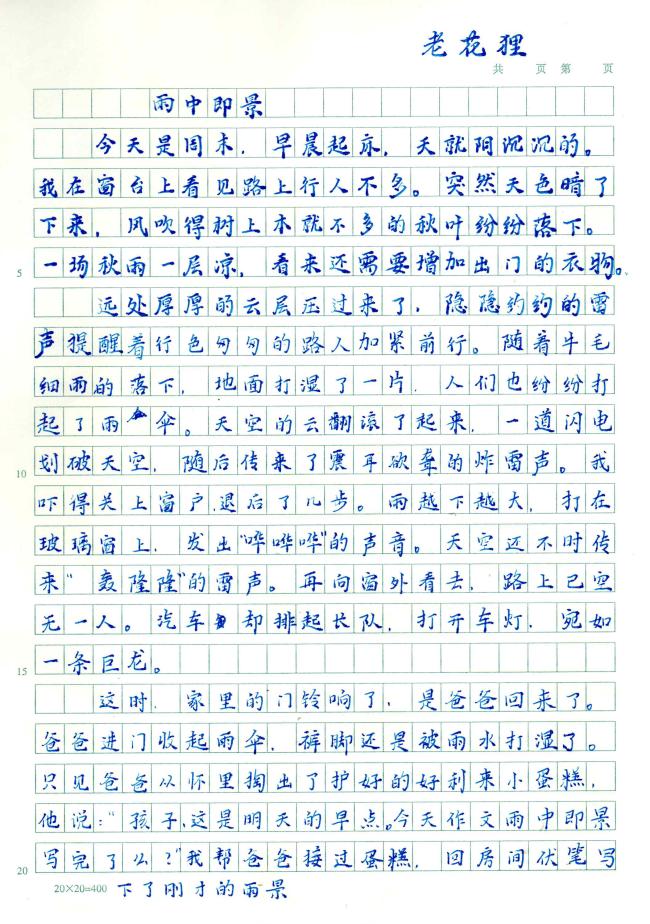 老花狸
共 页 第 页
雨中即景
今天是周末，早晨起床，天就阴沉沉的。
我在窗台上看见路上行人不多。突然天色暗了
下来，风吹得树上本就不多的秋叶纷纷落下。
5 一场秋雨一层凉，看来还需要增加出门的衣物。
远处厚厚的云层压过来了，隐隐约约的雷
声提醒着行色匆匆的路人加紧前行。随着牛毛
细雨的落下，地面打湿了一片，人们也纷纷打
起了雨伞。天空的云翻滚了起来，一道闪电
10 划破天空，随后传来了震耳欲聋的炸雷声。我
吓得关上窗户，退后了几步。雨越下越大，打在
玻璃窗上，发出“哗哗哗”的声音。天空还不时传
来“轰隆隆”的雷声。再向窗外看去，路上已空
无一人。汽车却排起长队，打开车灯，宛如
15 一条巨龙。
这时，家里的门铃响了，是爸爸回来了。
爸爸进门收起雨伞，裤脚还是被雨水打湿了。
只见爸爸从怀里掏出了护好的好利来小蛋糕，
他说：“孩子，这是明天的早点。今天作文雨中即景
20 写完了么？”我帮爸爸接过蛋糕，回房间伏笔写
20×20=400 下了刚才的雨景